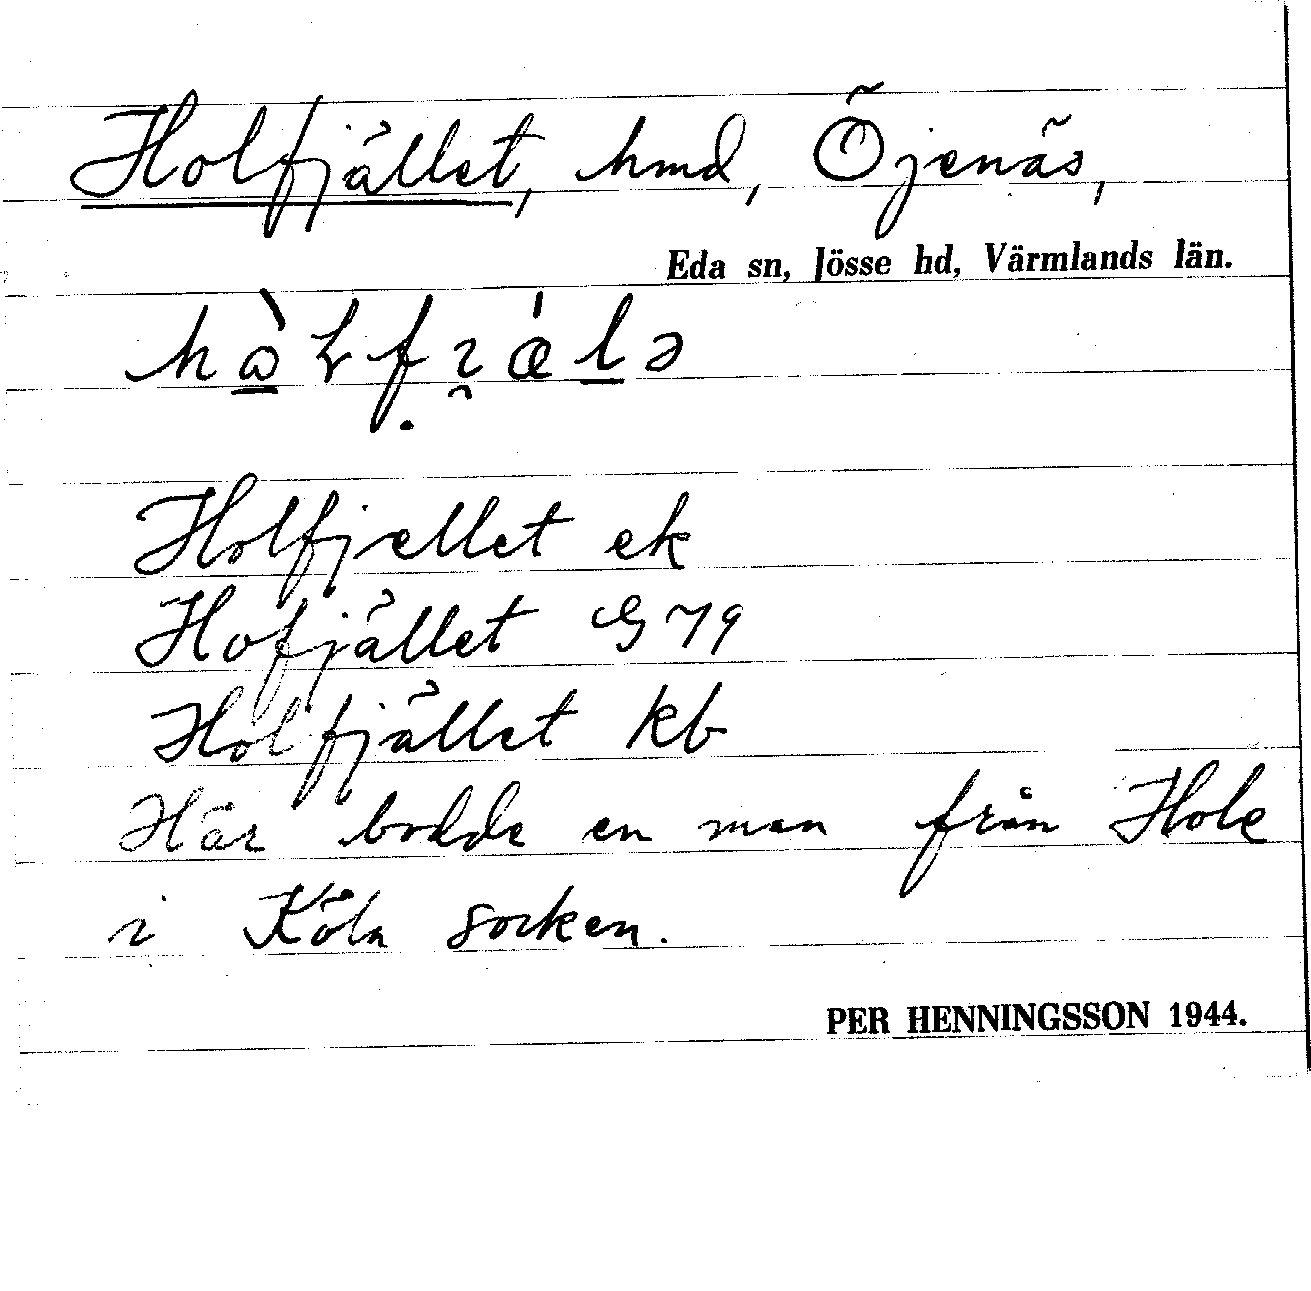 Holfjället, hmd, Öjenäs,
Eda sn, Jösse hd, Värmlands län.
Holfjellet ek
Hofjället G 79
Holfjället kb
Här bodde en man från Hole
i Köla socken.
PER HENNINGSSON 1944.